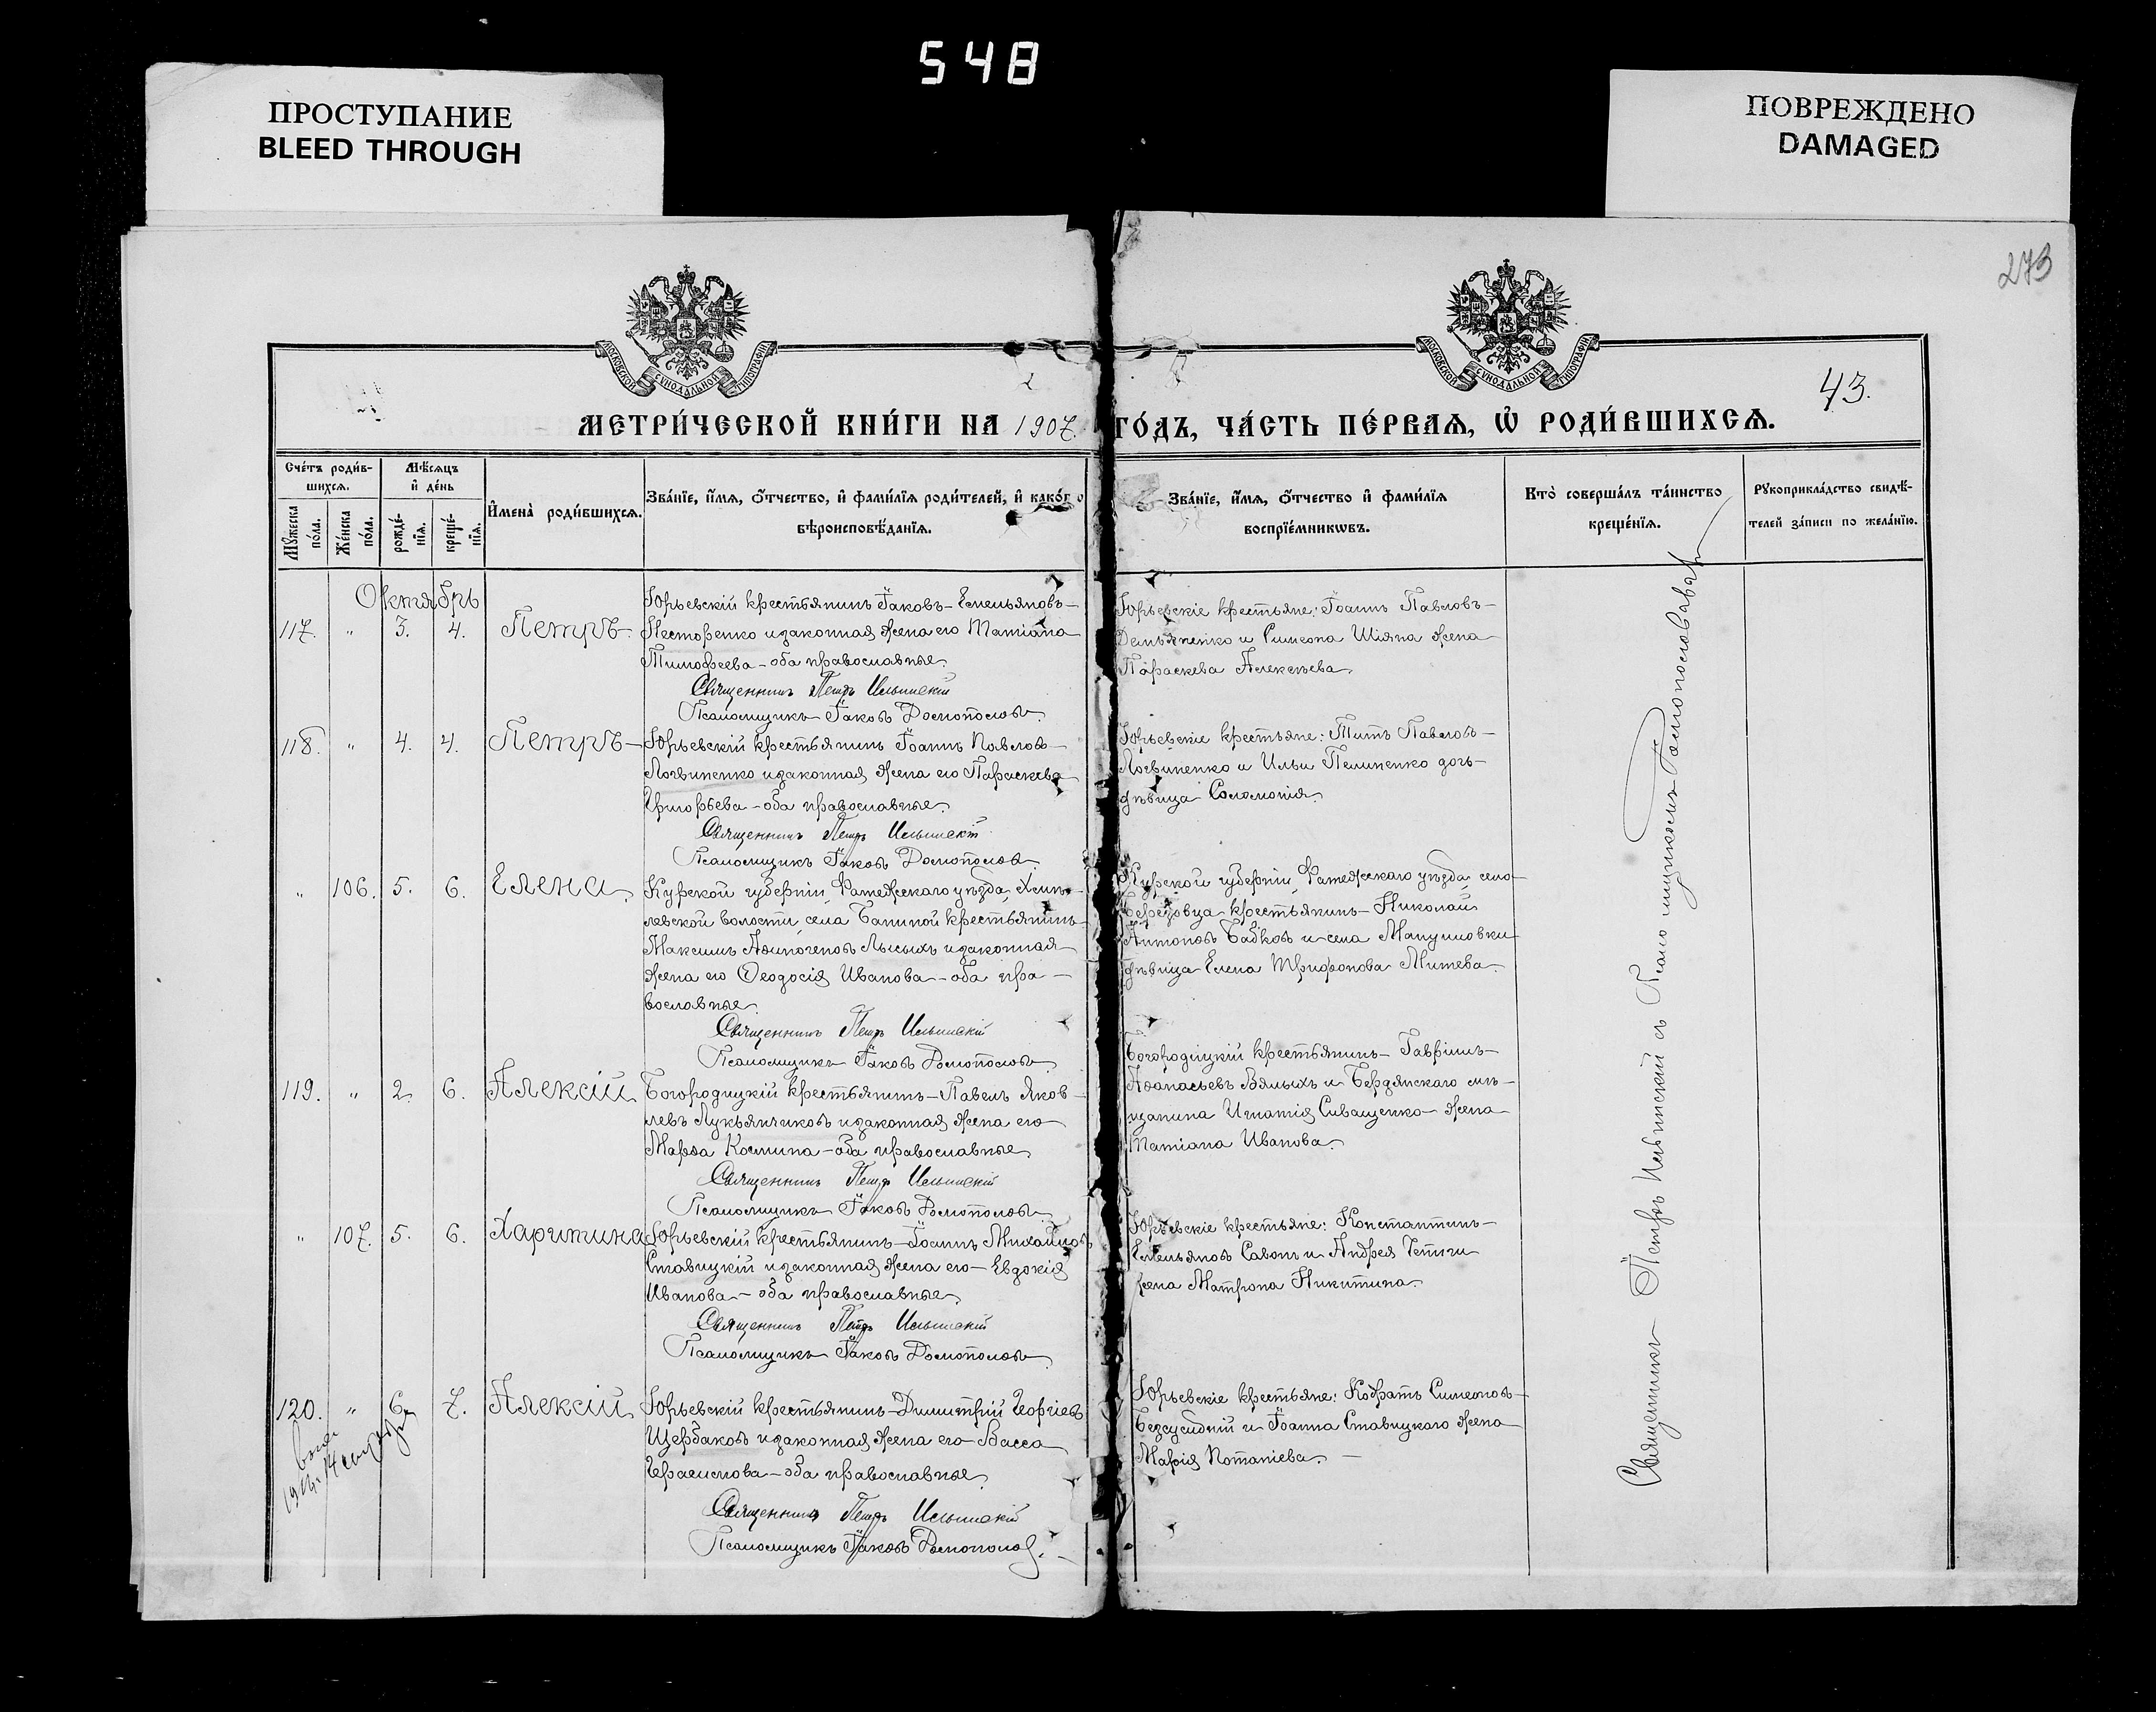 548
ПРОСТУПАНИЕ
BLEED THROUGH
ПОВРЕЖДЕНО
DAMAGED
273
МОСКОВСКОЙ СѴНОДАЛЬНОЙ ТИПОГРАФІИ
МОСКОВСКОЙ СѴНОДАЛЬНОЙ ТИПОГРАФІИ
43.
МЕТРИ́ЧЕСКОЙ КНИ́ГИ НА 1907. ГО́ДЪ, ЧА́СТЬ ПЕ́РВАѦ, Ѡ҆ РОДИ́ВШИХСѦ.
Сче́тъ роди́в-
шихсѧ.
Мꙋ́жеска по́ла.
Же́нска по́ла.
Мѣ́сѧцъ
и҆ де́нь
рожде́-
нїѧ.
креще́-
нїѧ.
И҆мена̀ роди́вшихсѧ.
Зва́нїе, и҆́мѧ, ѻ҆́тчество, и҆ фами́лїѧ роди́телей, и҆ како́гѡ
вѣроисповѣ́данїѧ.
Зва́нїе, и҆́мѧ, ѻ҆́тчество и҆ фами́лїѧ
воспрїе́мникѡвъ.
Кто̀ соверша́лъ та́инство
креще́нїѧ.
Рꙋкоприкла́дство свидѣ́-
телей за́писи по жела́нїю.
Октябрь
117. " 3. 4. Петръ
Юрьевскій крестьянинъ Іаковъ Емельяновъ
Несторенко и законная жена его Татіана
Тимофеева – оба православные.
Священникъ Петръ Ильинскій
Псаломщикъ Іаковъ Домополовъ
Юрьевскіе крестьяне: Іоаннъ Павловъ
Демьяненко и Симеона Шіяна жена
Параскева Алексѣева.
118. " 4. 4. Петръ
Юрьевскій крестьянинъ Іоаннъ Павловъ
Логвиненко и законная жена его Параскева
Григорьева – оба православные.
Священникъ Петръ Ильинскій
Псаломщикъ Іаковъ Домополовъ
Юрьевскіе крестьяне: Титъ Павловъ
Логвиненко и Ильи Пелипенко дочь
дѣвица Соломонія.
" 106. 5. 6. Елена
Курской губерніи, Фатежскаго уѣзда, Хмѣ-
левской волости, села Баниной крестьянинъ
Максимъ Аѳиногеновъ Лысыхъ и законная
жена его Ѳеодосія Иванова – оба пра-
вославные.
Священникъ Петръ Ильинскій
Псаломщикъ Іаковъ Домополовъ
Курской губерніи, Фатежскаго уѣзда, село
крестьянинъ Николай
Антоновъ Бабковъ и села Мануиловки
дѣвица Елена Трифонова Митева.
119. " 2. 6. Алексій
Богородицкій крестьянинъ – Павелъ Яков-
левъ Лукьянчиковъ и законная жена его
Марѳа Космина – оба православные.
Священникъ Петръ Ильинскій
Псаломщикъ Іаковъ Домополовъ
Богородицкій крестьянинъ – Гавріилъ
Аѳанасьевъ Вялыхъ и Бердянскаго мѣ-
щанина Игнатія Сиващенко – жена
Татіана Иванова.
" 107. 5. 6. Харитина
Юрьевскій крестьянинъ – Іоаннъ Михайловъ
Ставицкій и законная жена его – Евдокія
Иванова – оба православные.
Священникъ Петръ Ильинскій
Псаломщикъ Іаковъ Домополовъ
Юрьевскіе крестьяне: Константинъ
Емельяновъ Савонъ и Андрея
жена Матрона Никитина.
120. " 6. 7. Алексій
Юрьевскій крестьянинъ – Димитрій Георгіевъ
Щербаковъ и законная жена его – Васса
Герасимова – оба православные.
Священникъ Петръ Ильинскій
Псаломщикъ Іаковъ Домополовъ.
Юрьевскіе крестьяне: Кодратъ Симеоновъ
и Іоанна Ставицкаго жена
Марія Потапіева.
Священникъ Петръ Ильинскій съ Псаломщикомъ